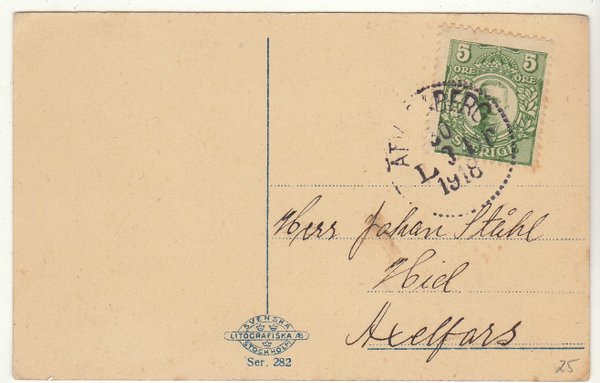 5 5
ÖRE ÖRE
SVERIGE
BERG
1918
Herr Johan Ståhl
Hid
Axelfors
SVENSKA
LITOGRAFISKA AB
STOCKHOLM
Ser. 282
25